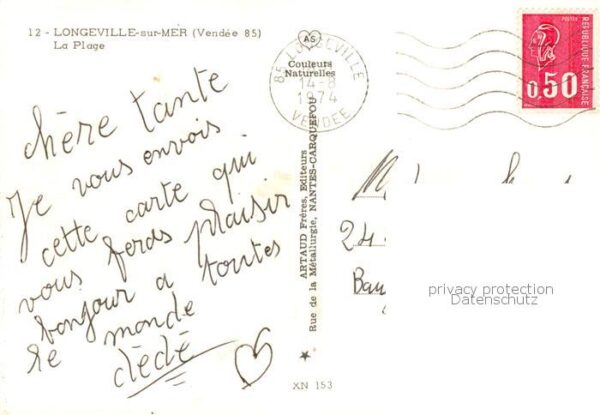 12 - LONGEVILLE-sur-MER (Vendée 85)
La Plage
chère tante
Je vous envois
cette carte qui
vous feras plaisir
bonjour a toutes
le monde
dédé
AS
Couleurs
Naturelles
85 LONGEVILLE
14-8
1974
VENDEE
POSTES
REPUBLIQUE FRANÇAISE
0,50
ARTAUD Frères, Editeurs
Rue de la Métallurgie, NANTES-CARQUEFOU
XN 153
24
privacy protection
Datenschutz